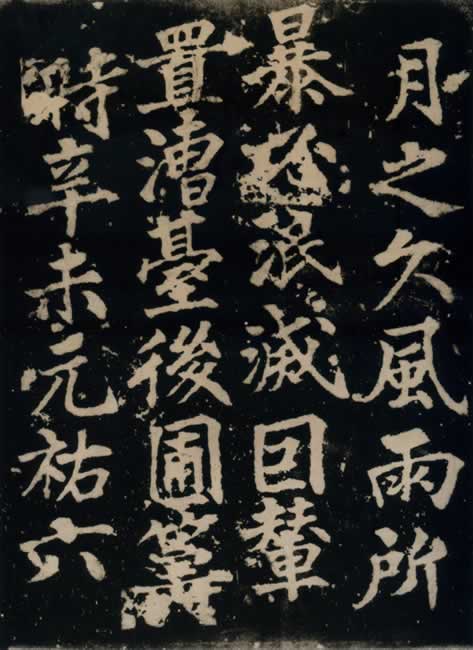 月之久風雨所
暴恐泯滅囙輦
置漕臺後圃
時辛未元祐六